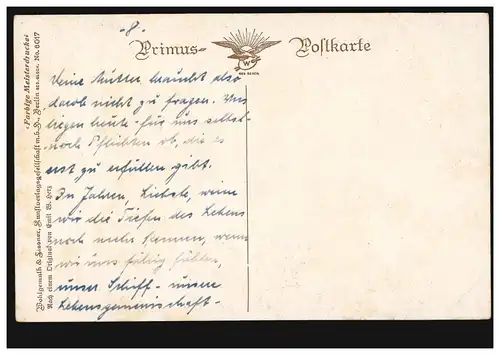 -8.-
Primus- Postkarte
W
GES. GESCH.
Deine Mutter braucht also
darob nicht zu fragen. Uns
liegen heute für uns selbst
noch Pflichten ob, die es
erst zu erfüllen gibt.
In Jahren, Liebste, wenn
wir die Tiefen des Lebens
noch mehr kennen, wenn
wir uns fähig fühlen,
unser Schiff - unsere
Lebensgemeinschaft -
"Farbige Meisterdrucke"
Wohlgemuth & Lissner, Kunstverlagsgesellschaft m.b.H., Berlin No. 6017
Nach einem Original von Emil W. Herz